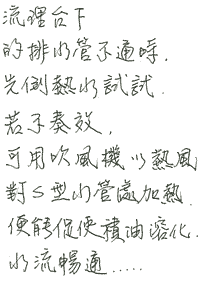 流理台下
的排水管不通時,
先倒熱水試試.
若不奏效,
可用吹風機以熱風
對S型水管處加熱.
便能促使積油溶化.
水流暢通.....